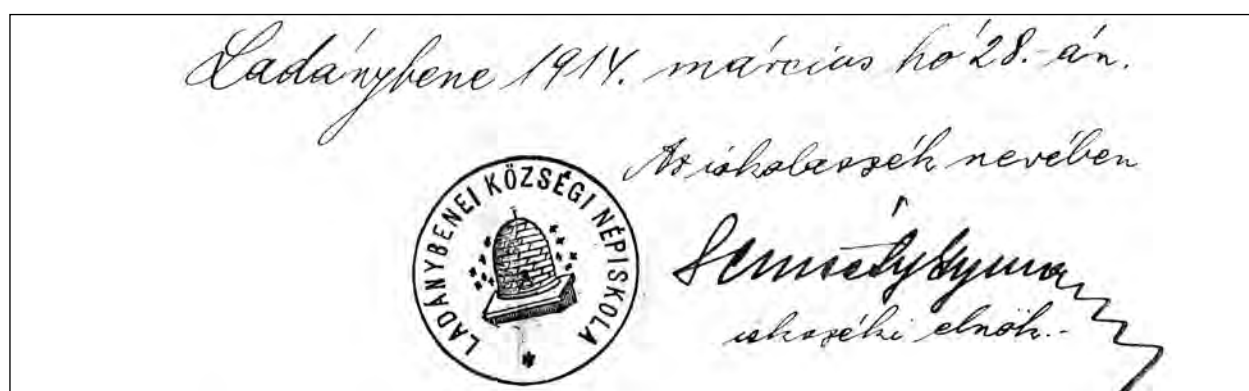 Ladánybene 1914. március hó 28.-án.
Az iskolaszék nevében
LADÁNYBENEI KÖZSÉGI NÉPISKOLA
isk. széki elnök.-